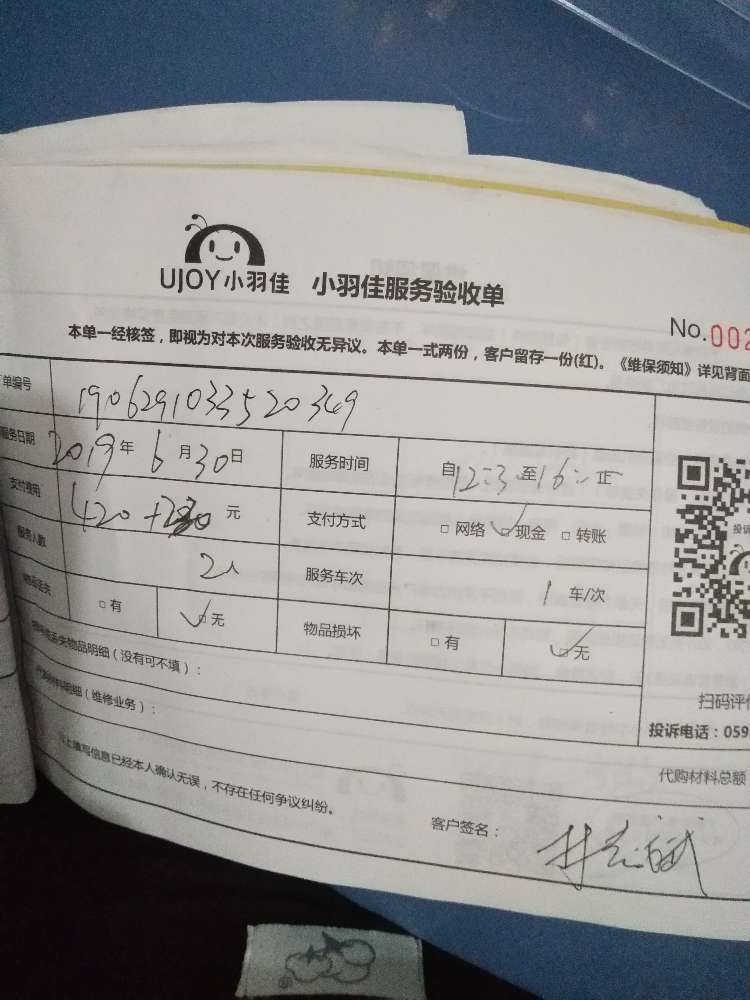 UJOY小羽佳 小羽佳服务验收单
No.002
本单一经核签，即视为对本次服务验收无异议。本单一式两份，客户留存一份(红)。《维保须知》详见背面
单编号 190629103352​0349
服务日期 2019年6月30日 服务时间 自12:3 至16:正
支付费用 420+280元 支付方式 □网络 ☑现金 □转账
服务人数 2人 服务车次 1车/次
物品丢失 □有 ☑无 物品损坏 □有 ☑无
丢失物品明细（没有可不填）：
明细（维修业务）：
扫码评价
投诉电话：059
代购材料总额
上填写信息已经本人确认无误，不存在任何争议纠纷。
客户签名：